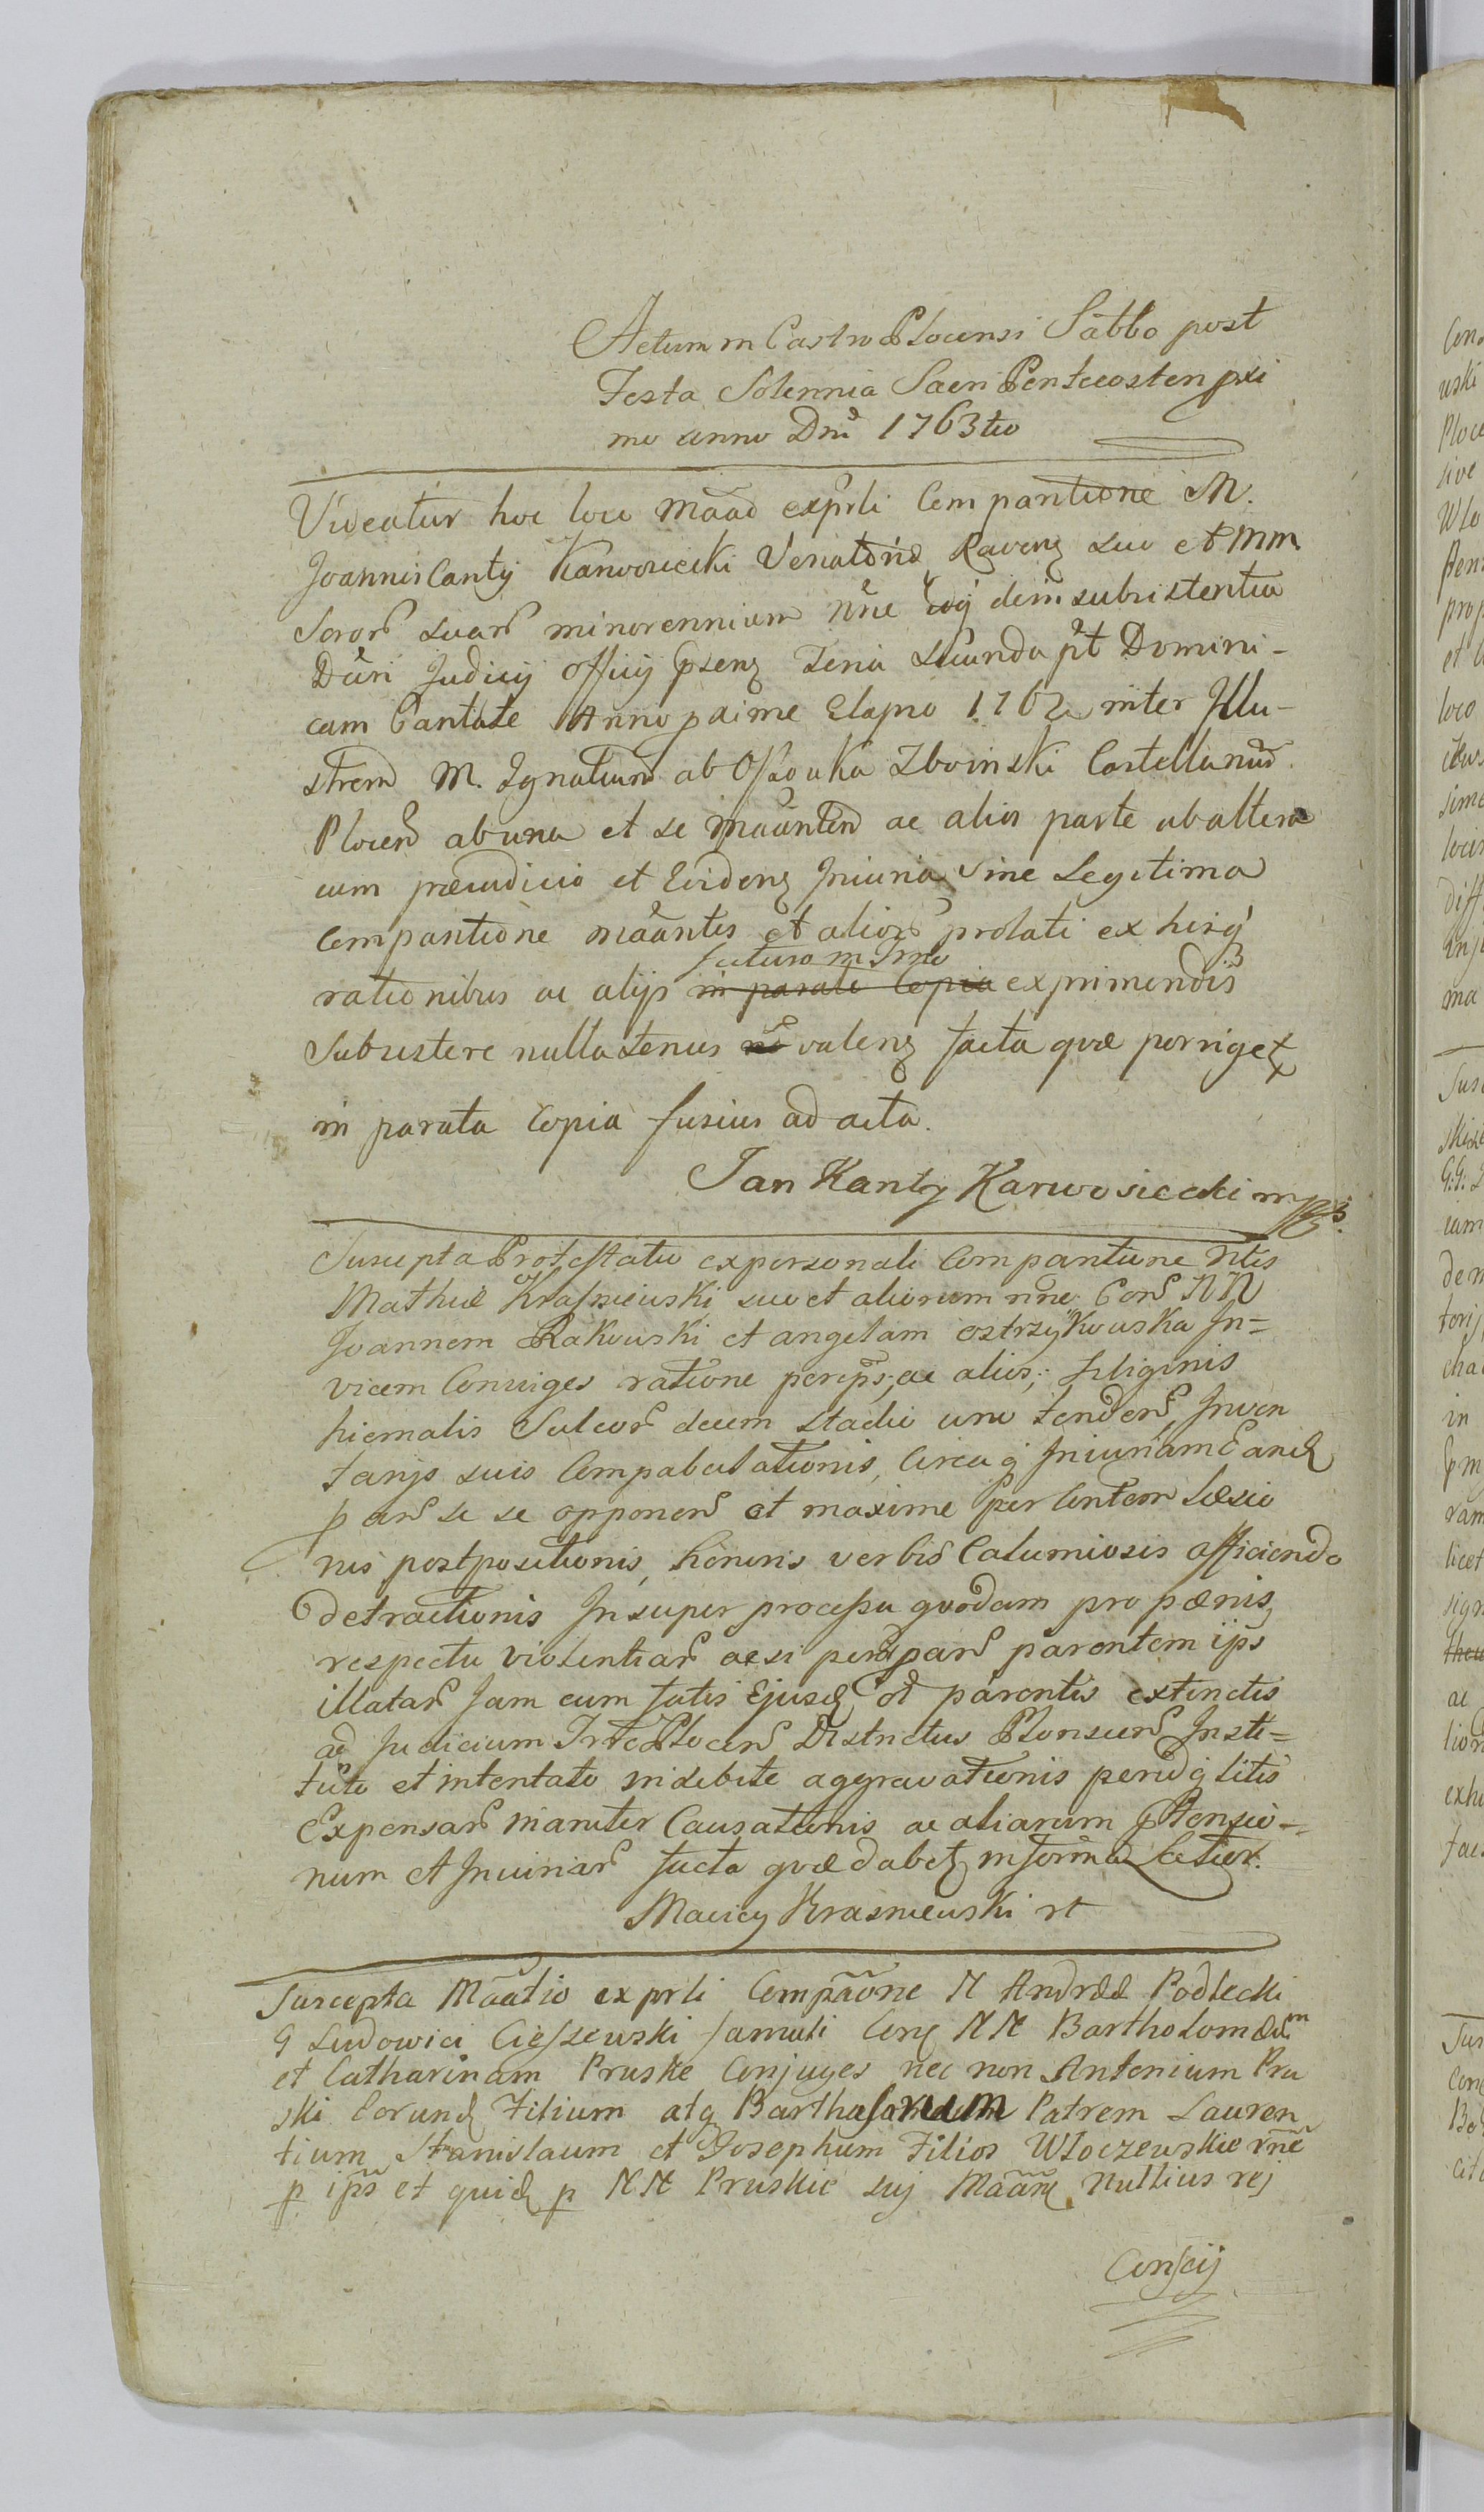 Actum in Castro Plocensi Sabbo post
Festa Solennia Sacri Pentecosten pxi
mo anno Dni 1763tio
Videatur hoc loco Maãõ exprli Compantione M.
Joannis Canty Karwosiecki Venatoris Ravens suo et MM
Soror suar minorennium nne
Judicij Officij psens Feria Secunda pt Domini-
cam Cantate Anno pxime Elapso 1762 inter Illu-
strem M. Ignatium ab Ossowka Zboinski Castellanum
Plocen ab una et se Maanten ac alios parte ab altera
cum præiudicio et Evidens Iniuria sine Legitima
Compantione maantis et alior prolati ex hisq
rationibus ac alijs in parata Copia futuro in Tmno exprimendis
Subsistere nullatenus valens facta quæ porriget
in parata Copia fusius ad acta.
Jan Kanty Karwosiecki mp
Suscepta Protestatio ex personali Compantione Nlis
Mathiæ Krasniewski suo et aliorum nne Con NN
Joannem Rakowski et angelam ostrzykowska In=
vicem Conuiges ratione ac alios, siliginis
hiemalis Sulcor decem stadio uno tenden, Inven
tarijs suis Compabulationis, Circa q Iniuriam Eand
p ans se se opponen et maxime per Læsio
nis postpositionis, honoris verbis Calumiosis afficiendo
detractionis Insuper processu quodam pro pænis
respectu violentiar acsi parentem ips
illatar Jam cum fatis Ejusd parentis extinctis
ad Judicium Plocen Districtus Plonscen Insti=
tuto et intentato indebite aggravationis litis
Expensar inaniter Causationis ac aliarum pttensio-
num et Iniuriar facta quæ dabet in forma latior.
Maciey Krasniewski rt
Suscepta Maãtio ex prli Compãõne N Andrææ Podlecki
G Ludowici Cieszewski famuli Con NN Bartholomæum
et Catharinam Pruskie Conjuges nec non Antonium Pru
ski Eorund Filium atq Patrem Lauren
tium Stanislaum et Josephum Filios Wloczewskie rñe
p ips et quid p NN Pruskie suj Maãn Nullius rej
Conscij